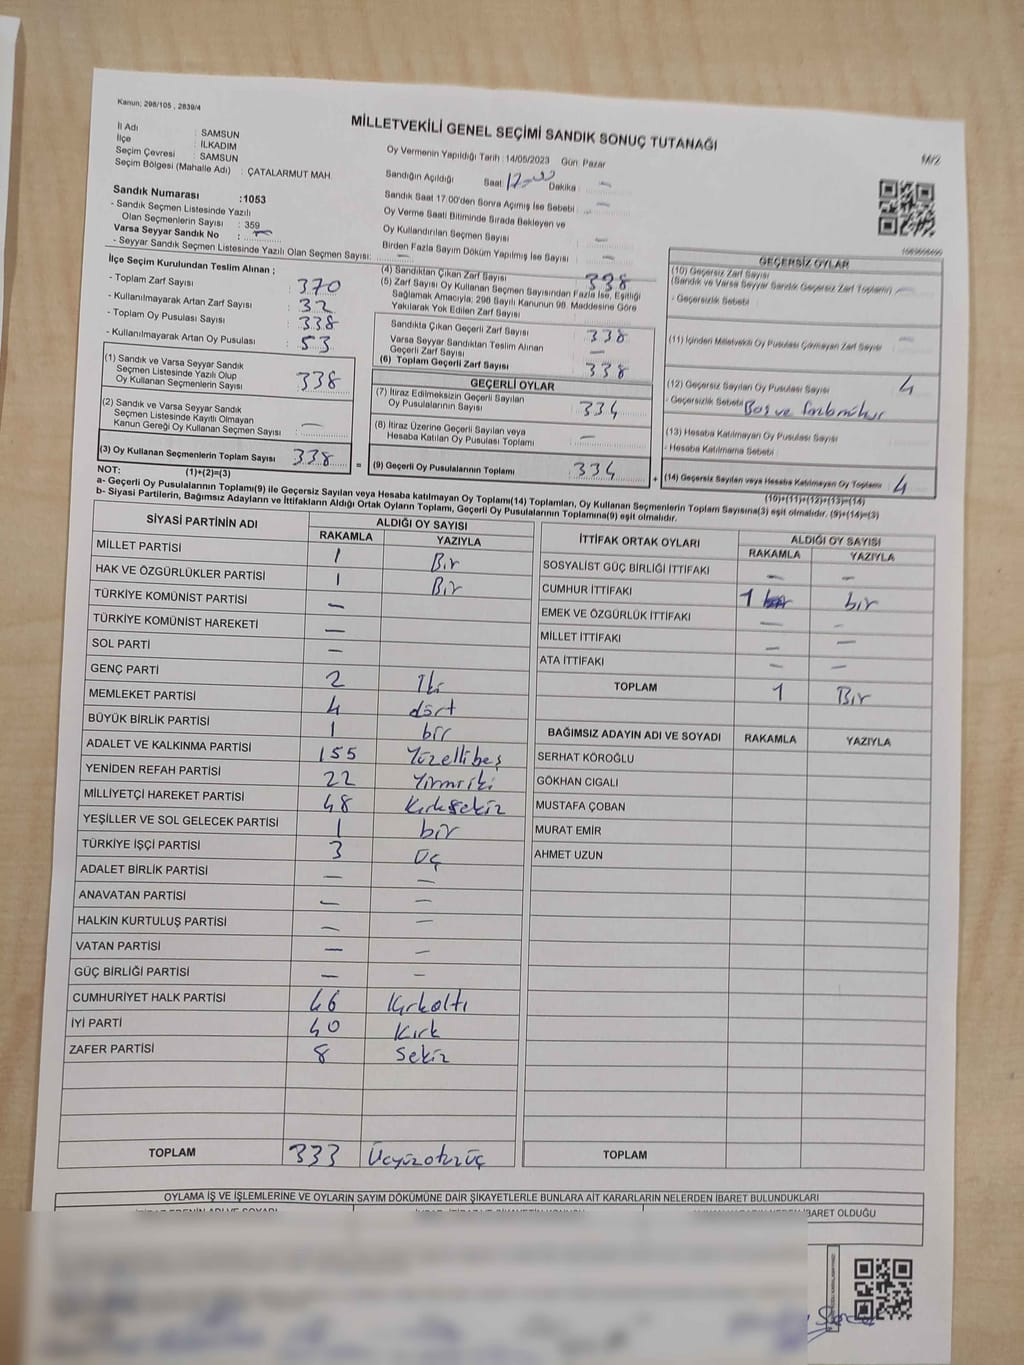 Kanun; 298/105 , 2839/4
MİLLETVEKİLİ GENEL SEÇİMİ SANDIK SONUÇ TUTANAĞI
M/2
İl Adı : SAMSUN
İlçe : İLKADIM
Seçim Çevresi : SAMSUN
Seçim Bölgesi (Mahalle Adı) : ÇATALARMUT MAH.
Sandık Numarası :1053
- Sandık Seçmen Listesinde Yazılı
Olan Seçmenlerin Sayısı : 359
Varsa Seyyar Sandık No : —
- Seyyar Sandık Seçmen Listesinde Yazılı Olan Seçmen Sayısı: —
Oy Vermenin Yapıldığı Tarih : 14/05/2023 Gün: Pazar
Sandığın Açıldığı Saat Dakika : —
Sandık Saat 17.00'den Sonra Açımış İse Sebebi : —
Oy Verme Saati Bitiminde Sırada Bekleyen ve
Oy Kullandırılan Seçmen Sayısı : —
Birden Fazla Sayım Döküm Yapılmış İse Sayısı : —
İlçe Seçim Kurulundan Teslim Alınan ;
- Toplam Zarf Sayısı : 370
- Kullanılmayarak Artan Zarf Sayısı : 32
- Toplam Oy Pusulası Sayısı : 338
- Kullanılmayarak Artan Oy Pusulası : 53
(1) Sandık ve Varsa Seyyar Sandık
Seçmen Listesinde Yazılı Olup
Oy Kullanan Seçmenlerin Sayısı : 338
(2) Sandık ve Varsa Seyyar Sandık
Seçmen Listesinde Kayıtlı Olmayan
Kanun Gereği Oy Kullanan Seçmen Sayısı : —
(3) Oy Kullanan Seçmenlerin Toplam Sayısı 338
(1)+(2)=(3)
(4) Sandıktan Çıkan Zarf Sayısı : 338
(5) Zarf Sayısı Oy Kullanan Seçmen Sayısından Fazla İse, Eşitliği
Sağlamak Amacıyla; 298 Sayılı Kanunun 98. Maddesine Göre
Yakılarak Yok Edilen Zarf Sayısı :
Sandıkta Çıkan Geçerli Zarf Sayısı : 338
Varsa Seyyar Sandıktan Teslim Alınan
Geçerli Zarf Sayısı : —
(6) Toplam Geçerli Zarf Sayısı : 338
GEÇERLİ OYLAR
(7) İtiraz Edilmeksizin Geçerli Sayılan
Oy Pusulalarının Sayısı : 334
(8) İtiraz Üzerine Geçerli Sayılan veya
Hesaba Katılan Oy Pusulası Toplamı : —
= (9) Geçerli Oy Pusulalarının Toplamı : 334 +
GEÇERSİZ OYLAR
(10) Geçersiz Zarf Sayısı
(Sandık ve Varsa Seyyar Sandık Geçersiz Zarf Toplamı) : —
- Geçersizlik Sebebi :
(11) İçinden Milletvekili Oy Pusulası Çıkmayan Zarf Sayısı : —
(12) Geçersiz Sayılan Oy Pusulası Sayısı : 4
- Geçersizlik Sebebi : Boş ve
(13) Hesaba Katılmayan Oy Pusulası Sayısı :
- Hesaba Katılmama Sebebi :
(14) Geçersiz Sayılan veya Hesaba Katılmayan Oy Toplamı : 4
(10)+(11)+(12)+(13)=(14)
NOT:
a- Geçerli Oy Pusulalarının Toplamı(9) ile Geçersiz Sayılan veya Hesaba katılmayan Oy Toplamı(14) Toplamları, Oy Kullanan Seçmenlerin Toplam Sayısına(3) eşit olmalıdır. (9)+(14)=(3)
b- Siyasi Partilerin, Bağımsız Adayların ve İttifakların Aldığı Ortak Oyların Toplamı, Geçerli Oy Pusulalarının Toplamına(9) eşit olmalıdır.
SİYASİ PARTİNİN ADI ALDIĞI OY SAYISI
RAKAMLA YAZIYLA
MİLLET PARTİSİ 1 Bir
HAK VE ÖZGÜRLÜKLER PARTİSİ 1 Bir
TÜRKİYE KOMÜNİST PARTİSİ —
TÜRKİYE KOMÜNİST HAREKETİ —
SOL PARTİ —
GENÇ PARTİ 2 İki
MEMLEKET PARTİSİ 4 dört
BÜYÜK BİRLİK PARTİSİ 1 bir
ADALET VE KALKINMA PARTİSİ 155 Yüzellibeş
YENİDEN REFAH PARTİSİ 22 Yirmiiki
MİLLİYETÇİ HAREKET PARTİSİ 48 Kırksekiz
YEŞİLLER VE SOL GELECEK PARTİSİ 1 bir
TÜRKİYE İŞÇİ PARTİSİ 3 Üç
ADALET BİRLİK PARTİSİ — —
ANAVATAN PARTİSİ — —
HALKIN KURTULUŞ PARTİSİ — —
VATAN PARTİSİ — —
GÜÇ BİRLİĞİ PARTİSİ — —
CUMHURİYET HALK PARTİSİ 46 Kırkaltı
İYİ PARTİ 40 Kırk
ZAFER PARTİSİ 8 Sekiz
TOPLAM 333 Üçyüzotuzüç
İTTİFAK ORTAK OYLARI ALDIĞI OY SAYISI
RAKAMLA YAZIYLA
SOSYALİST GÜÇ BİRLİĞİ İTTİFAKI — —
CUMHUR İTTİFAKI 1 bir
EMEK VE ÖZGÜRLÜK İTTİFAKI — —
MİLLET İTTİFAKI — —
ATA İTTİFAKI — —
TOPLAM 1 Bir
BAĞIMSIZ ADAYIN ADI VE SOYADI RAKAMLA YAZIYLA
SERHAT KÖROĞLU
GÖKHAN CIGALI
MUSTAFA ÇOBAN
MURAT EMİR
AHMET UZUN
TOPLAM
OYLAMA İŞ VE İŞLEMLERİNE VE OYLARIN SAYIM DÖKÜMÜNE DAİR ŞİKAYETLERLE BUNLARA AİT KARARLARIN NELERDEN İBARET BULUNDUKLARI
İBARET OLDUĞU